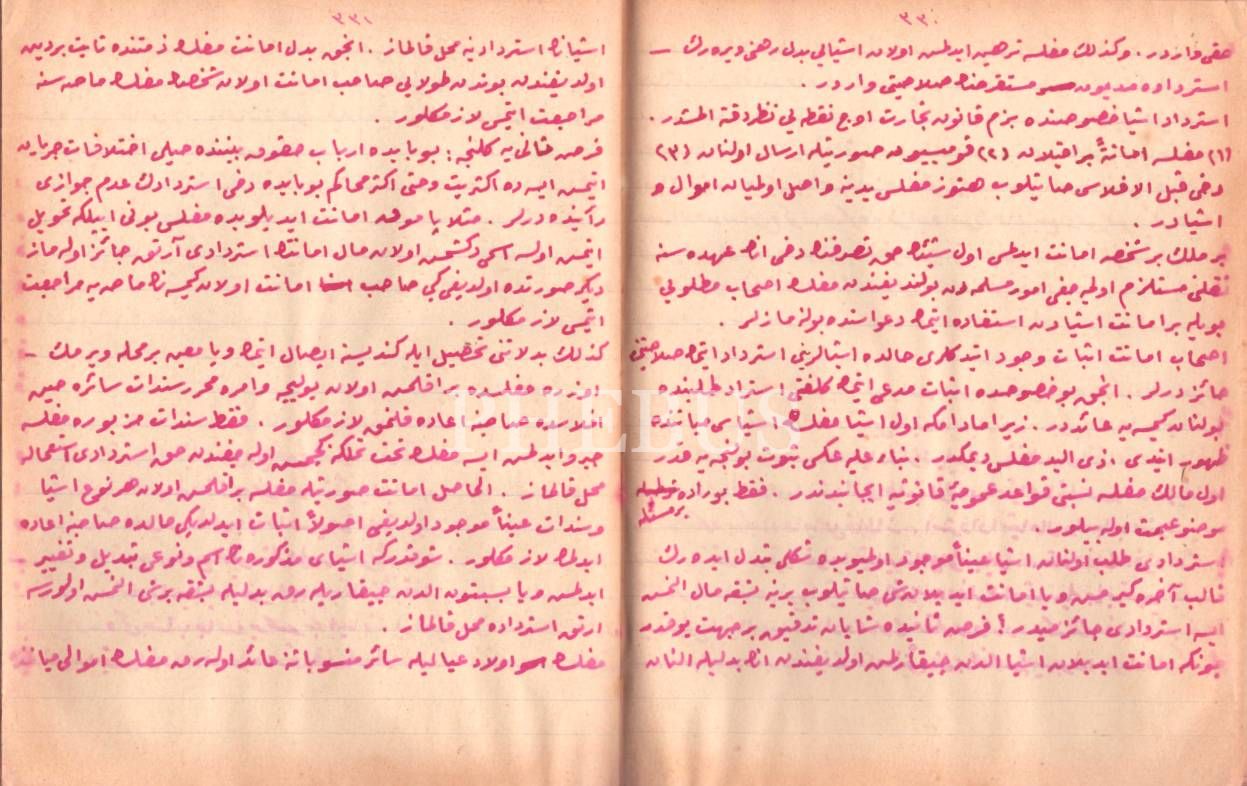 ٣٣٠
حقی واردر. وكذلك مفلسه ترهین ایدلمش اولان اشیایی بدل رهنی ویره‌رك
استرداده مدیون مستقرضك صلاحیتی واردر.
استرداد اشیا خصوصنده بزم قانون تجارت اوچ نقطه‌یی نظر دقته المشدر.
(١) مفلسه امانةً براقیلان (٢) قومیسیون صورتیله ارسال اولنان (٣)
دخی قبل الافلاس صاتیلوب هنوز مفلس یدینه واصل اولمایان اموال و
اشیادر.
بر ملك بر شخصه امانت ایدلمش اول شیئك حق تصرفنك دخی انك عهده‌سنه
نقلنی مستلزم اولمیه‌جغی امور مسلمه‌دن بولندیغندن مفلسك اصحاب مطلوبی
بویله بر امانت اشیادن استفاده ایتمك دعواسنده بولنه‌مازلر.
اصحاب امانت اثبات وجود ایتدكلری حالده اشیالرینی استرداد ایتمك صلاحیتی
حائزدرلر. انجق بو خصوصده اثبات مدعی ایتمك كلفتی استرداد طلبنده
بولنان كیمسه‌یه عائددر. زیرا مادامكه اول اشیا مفلسك اشیاسی میاننده
ظهور ایتدی. ذی الید مفلس دیمكدر. بناءً علیه عكسی ثبوت بولنجه‌یه قدر
اول مالك مفلسه نسبتی قواعد عمومیهٔ قانونیه ایجابندندر. فقط بوراده بر مسئله
موضوع بحث اوله‌بیلور.
استردادی طلب اولنان اشیا عیناً موجود اولمیوبده شكلی تبدل ایده‌رك
قالب آخره كیرمش ویا امانت ایدیلان شی صاتیلوب یرینه بشقه مال النمش
ایسه استردادی جائزمیدر؟ فرض ثانیده شایان تدقیق بر جهت یوقدر
چونكه امانت ایدیلان اشیا الدن چیقارلمش اولدیغندن انك بدلیله النان
٣٣١
اشیانك استردادینه محل قالماز. انجق بدل امانت مفلسك ذمتنده ثابت بر دین
اولدیغندن بوندن طولایی صاحب امانت اولان شخصك مفلسك ماصه‌سنه
مراجعت ایتمسی لازمكلور.
فرض ثالثه كلنجه: بو بابده ارباب حقوق بیننده خیلی اختلافات جریان
ایتمش ایسه‌ده اكثریت وحتی اكثر محاكم بو بابده دخی استردادك عدم جوازی
رأینده‌درلر. مثلا یاموق امانت ایدیلوبده مفلس بونی ایپلكه تحویل
ایتمش اولسه اسمی دكشمش اولان مال امانتك استردادی آرتق جائز اوله‌ماز
دیكر صورتده اولدیغی كبی صاحب امانت اولان كیمسه‌نك ماصه‌یه مراجعت
ایتمسی لازمكلور.
كذلك بدلاتنی تحصیل ایله كندیسنه ایصال ایتمك ویا معین بر محله ویرمك
اوزره مفلسده براقلمش اولان پولیچه وامره محرر سندات سائره حین
افلاسده صاحبنه اعاده قلنمق لازمكلور. فقط سندات مزبوره مفلسه
جیرو ایدلمش ایسه مفلسك تحت تملكنه كچمش اوله‌جغندن حق استردادی استعماله
محل قالماز. الحاصل امانت صورتیله مفلسه براقلمش اولان هر نوع اشیا
وسندات عیناً موجود اولدیغی اصولاً اثبات ایدلدیكی حالده صاحبنه اعاده
ایدلمك لازمكلور. شوقدركه اشیای مذكوره‌نك اسم ونوعی تبدیل وتغییر
ایدلمش ویا بسبتون الدن چیقاریله‌رق بدلیله بشقه بر شی النمش اولورسه
ارتق استرداده محل قالماز.
مفلسك اولاد عیالیله سائر منسوباتنه عائد اوله‌رق مفلسك اموالی میاننده
PHEBUS